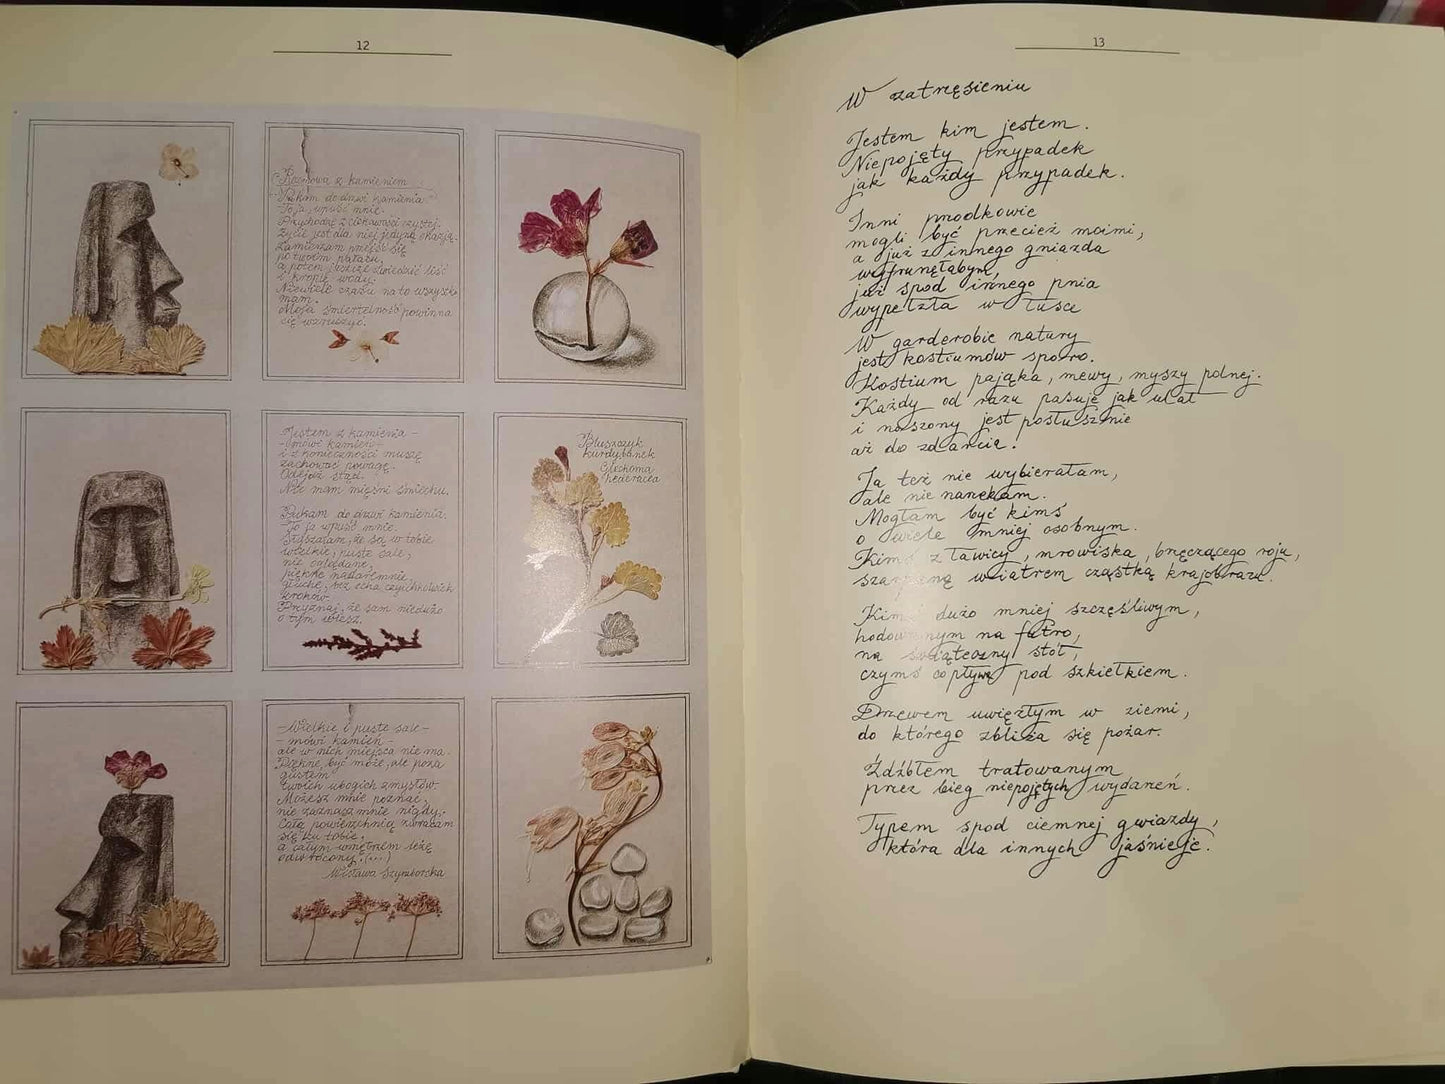 12
Rozmowa z kamieniem
Pukam do drzwi kamienia.
To ja, wpuść mnie.
Przychodzę z ciekawości czystej.
Życie jest dla niej jedyną okazją.
Zamierzam przejść się
po twoim pałacu,
a potem jeszcze zwiedzić liść
i kroplę wody.
Niewiele czasu na to wszystko
mam.
Moja śmiertelność powinna
cię wzruszyć.
Jestem z kamienia –
– mówi kamień –
i z konieczności muszę
zachować powagę.
Odejdź stąd.
Nie mam mięśni śmiechu.
Pukam do drzwi kamienia.
To ja, wpuść mnie.
Słyszałam, że są w tobie
wielkie, puste sale,
nie oglądane,
piękne nadaremnie
głuche, bez echa czyichkolwiek
kroków.
Przyznaj, że sam niedużo
o tym wiesz.
Bluszczyk
kurdybanek
Glechoma
hederacea
– Wielkie i puste sale –
– mówi kamień –
ale w nich miejsca nie ma.
Piękne, być może, ale poza
gustem
twoich ubogich zmysłów.
Możesz mnie poznać,
nie zaznasz mnie nigdy.
Całą powierzchnią zwracam
się ku tobie,
a całym wnętrzem leżę
odwrócony. (...)
Wisława Szymborska
13
W zatrzęsieniu
Jestem kim jestem.
Niepojęty przypadek
jak każdy przypadek.
Inni przodkowie
mogli być przecież moimi,
a już z innego gniazda
wyfrunęłabym,
już spod innego pnia
wypełzła w łusce
W garderobie natury
jest kostiumów sporo.
Kostium pająka, mewy, myszy polnej.
Każdy od razu pasuje jak ulał
i noszony jest posłusznie
aż do zdarcia.
Ja też nie wybierałam,
ale nie narzekam.
Mogłam być kimś
o wiele mniej osobnym.
Kimś z ławicy, mrowiska, brzęczącego roju,
szarpaną wiatrem cząstką krajobrazu.
Kimś dużo mniej szczęśliwym,
hodowanym na futro,
na świąteczny stół,
czymś co pływa pod szkiełkiem.
Drzewem uwięzłym w ziemi,
do którego zbliża się pożar.
Źdźbłem tratowanym
przez bieg niepojętych wydarzeń.
Typem spod ciemnej gwiazdy,
która dla innych jaśnieje.